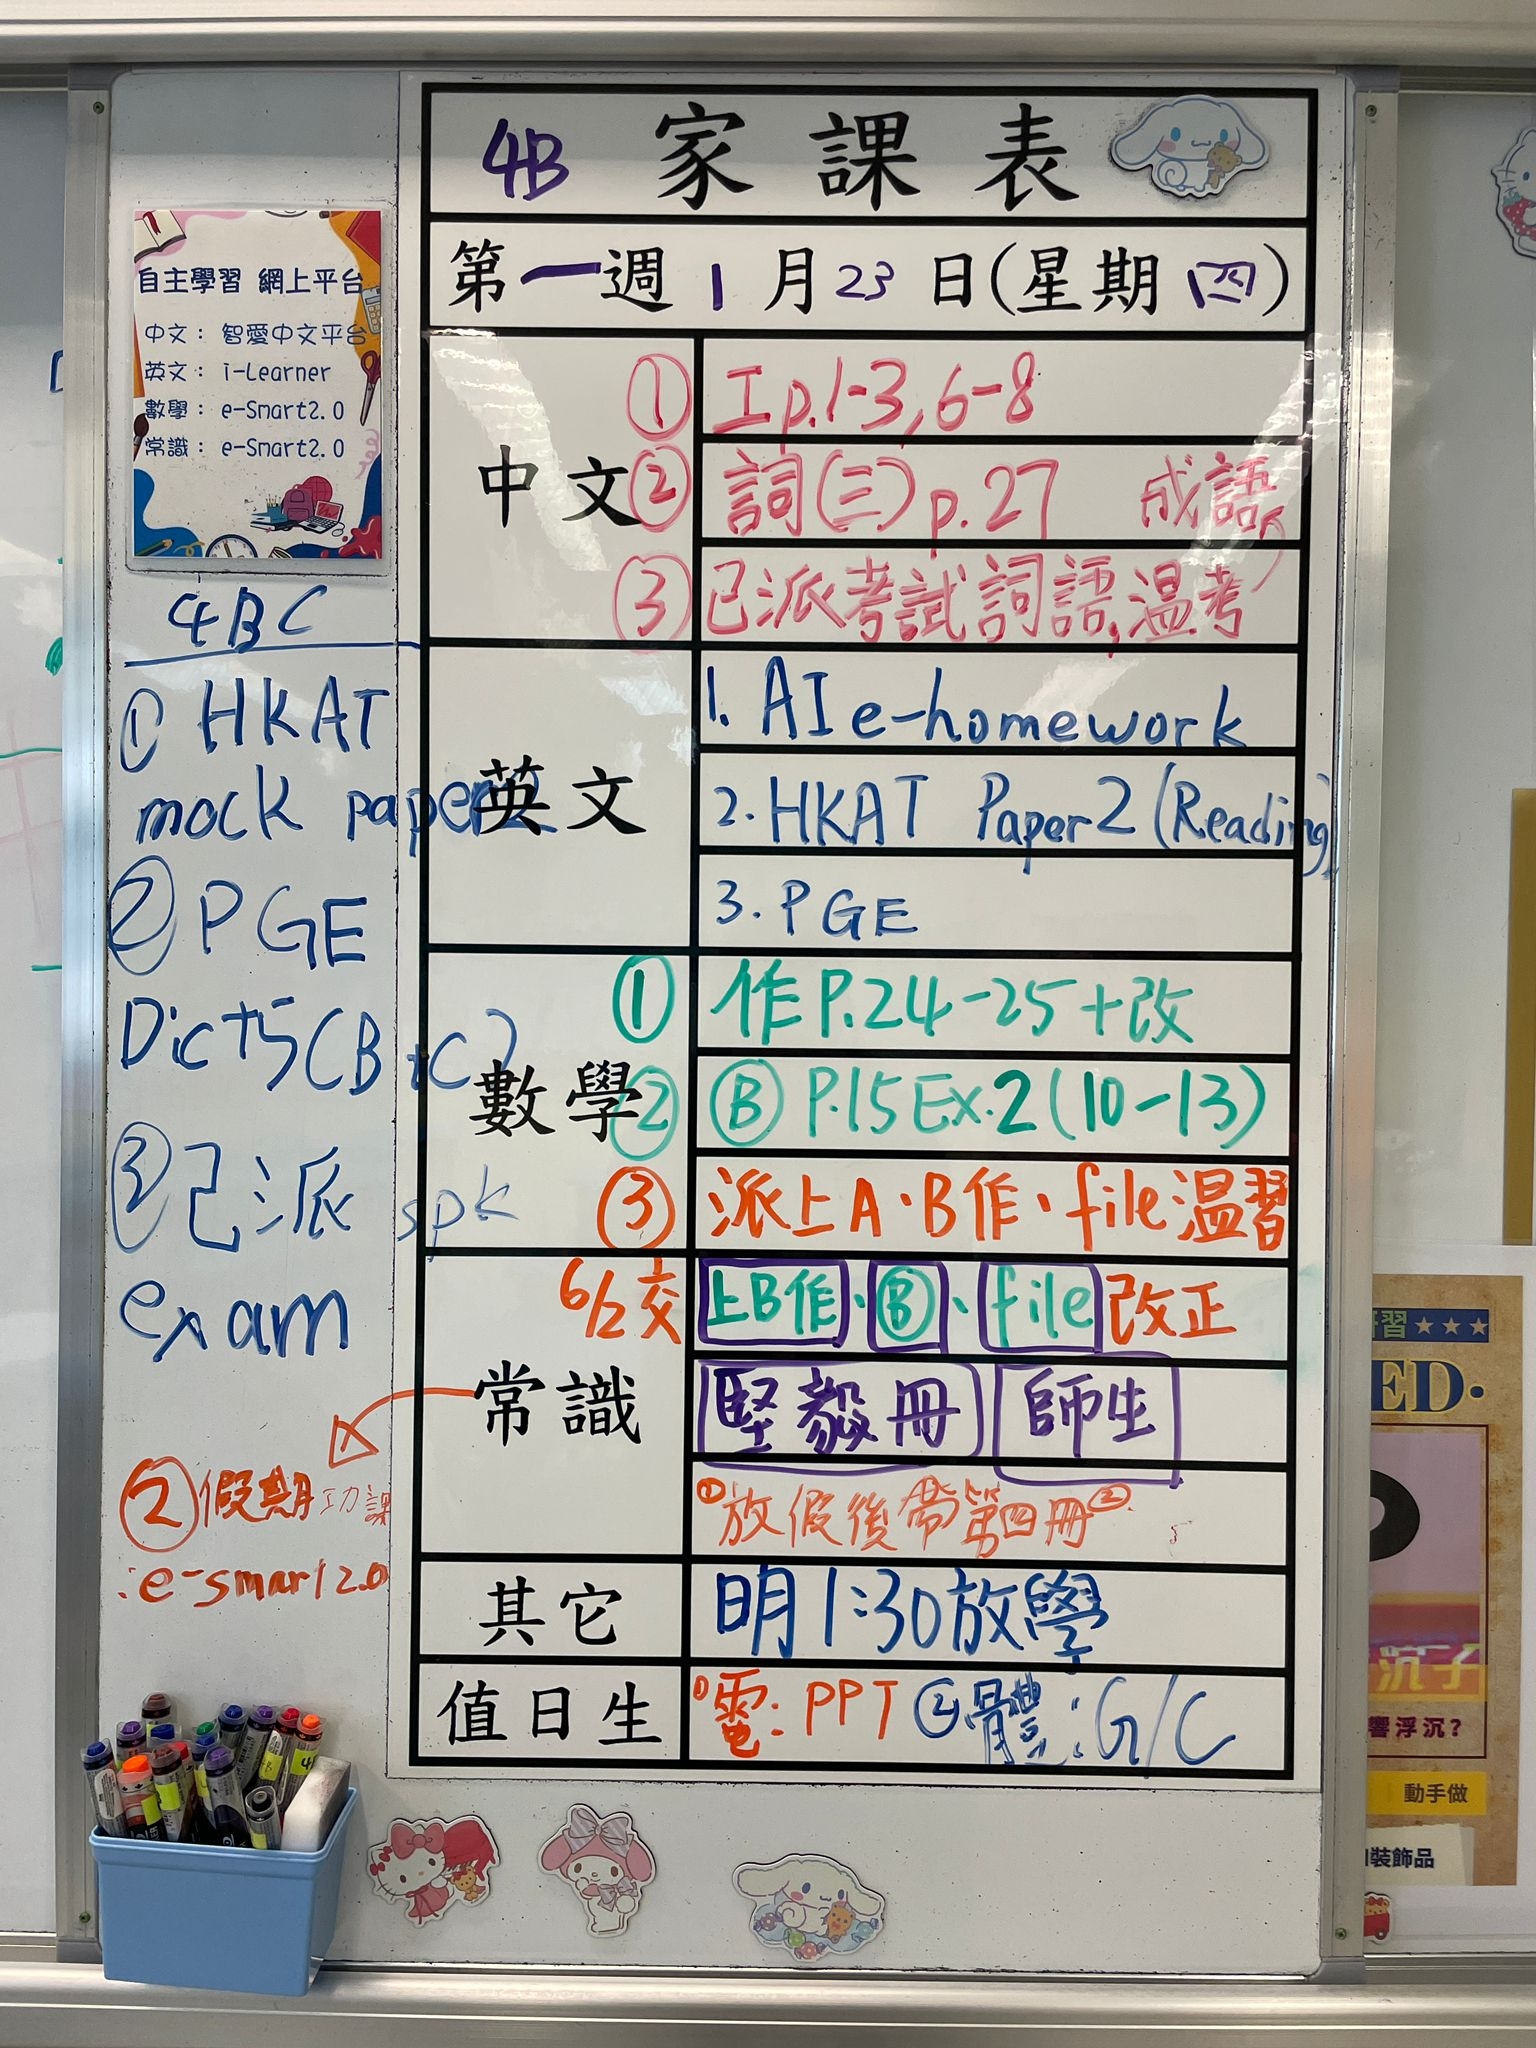 4B 家課表
第一週 1月23日(星期四)
自主學習 網上平台
中文： 智愛中文平台
英文： i-Learner
數學： e-Smart2.0
常識： e-Smart2.0
中文
① 工p.1-3,6-8
② 詞(三)p.27 成語,
③ 已派考試詞語,温考
英文
1. AI e-homework
2. HKAT Paper 2 (Reading)
3. PGE
數學
① 作P.24-25+改
② Ⓑ P.15 Ex.2(10-13)
③ 派上A、B作、file温習
常識
6/2交 上B作、Ⓑ、file 改正
堅毅冊 師生
①放假後帶第四冊②
其它
明1:30放學
值日生
①電: PPT ②體: G/C
4BC
① HKAT
mock paper 2
② PGE
Dict 5(B+C)
③ 已派 spk
exam
② 假期功課
:e-smart 2.0
習★★★
ED.
沉子
響浮沉？
動手做
裝飾品